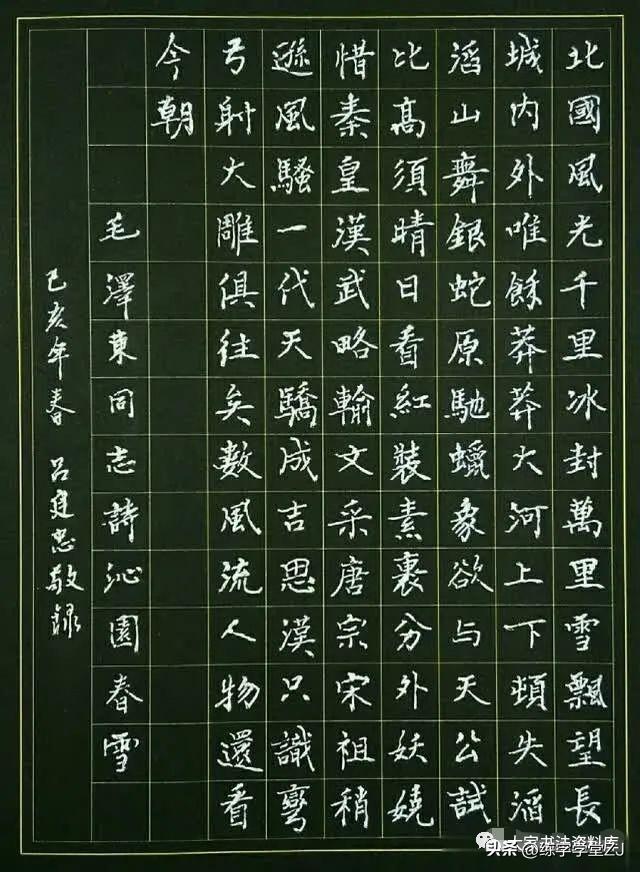 北國風光千里冰封萬里雪飄望長
城内外唯餘莽莽大河上下頓失滔
滔山舞銀蛇原馳蠟象欲与天公試
比高須晴日看紅裝素裹分外妖嬈
惜秦皇漢武略輸文采唐宗宋祖稍
遜風騷一代天驕成吉思漢只識彎
弓射大雕俱往矣數風流人物還看
今朝
毛澤東同志詩沁園春雪
己亥年春 吕忠敬録
书法资料库
头条 @练字学堂ZJ